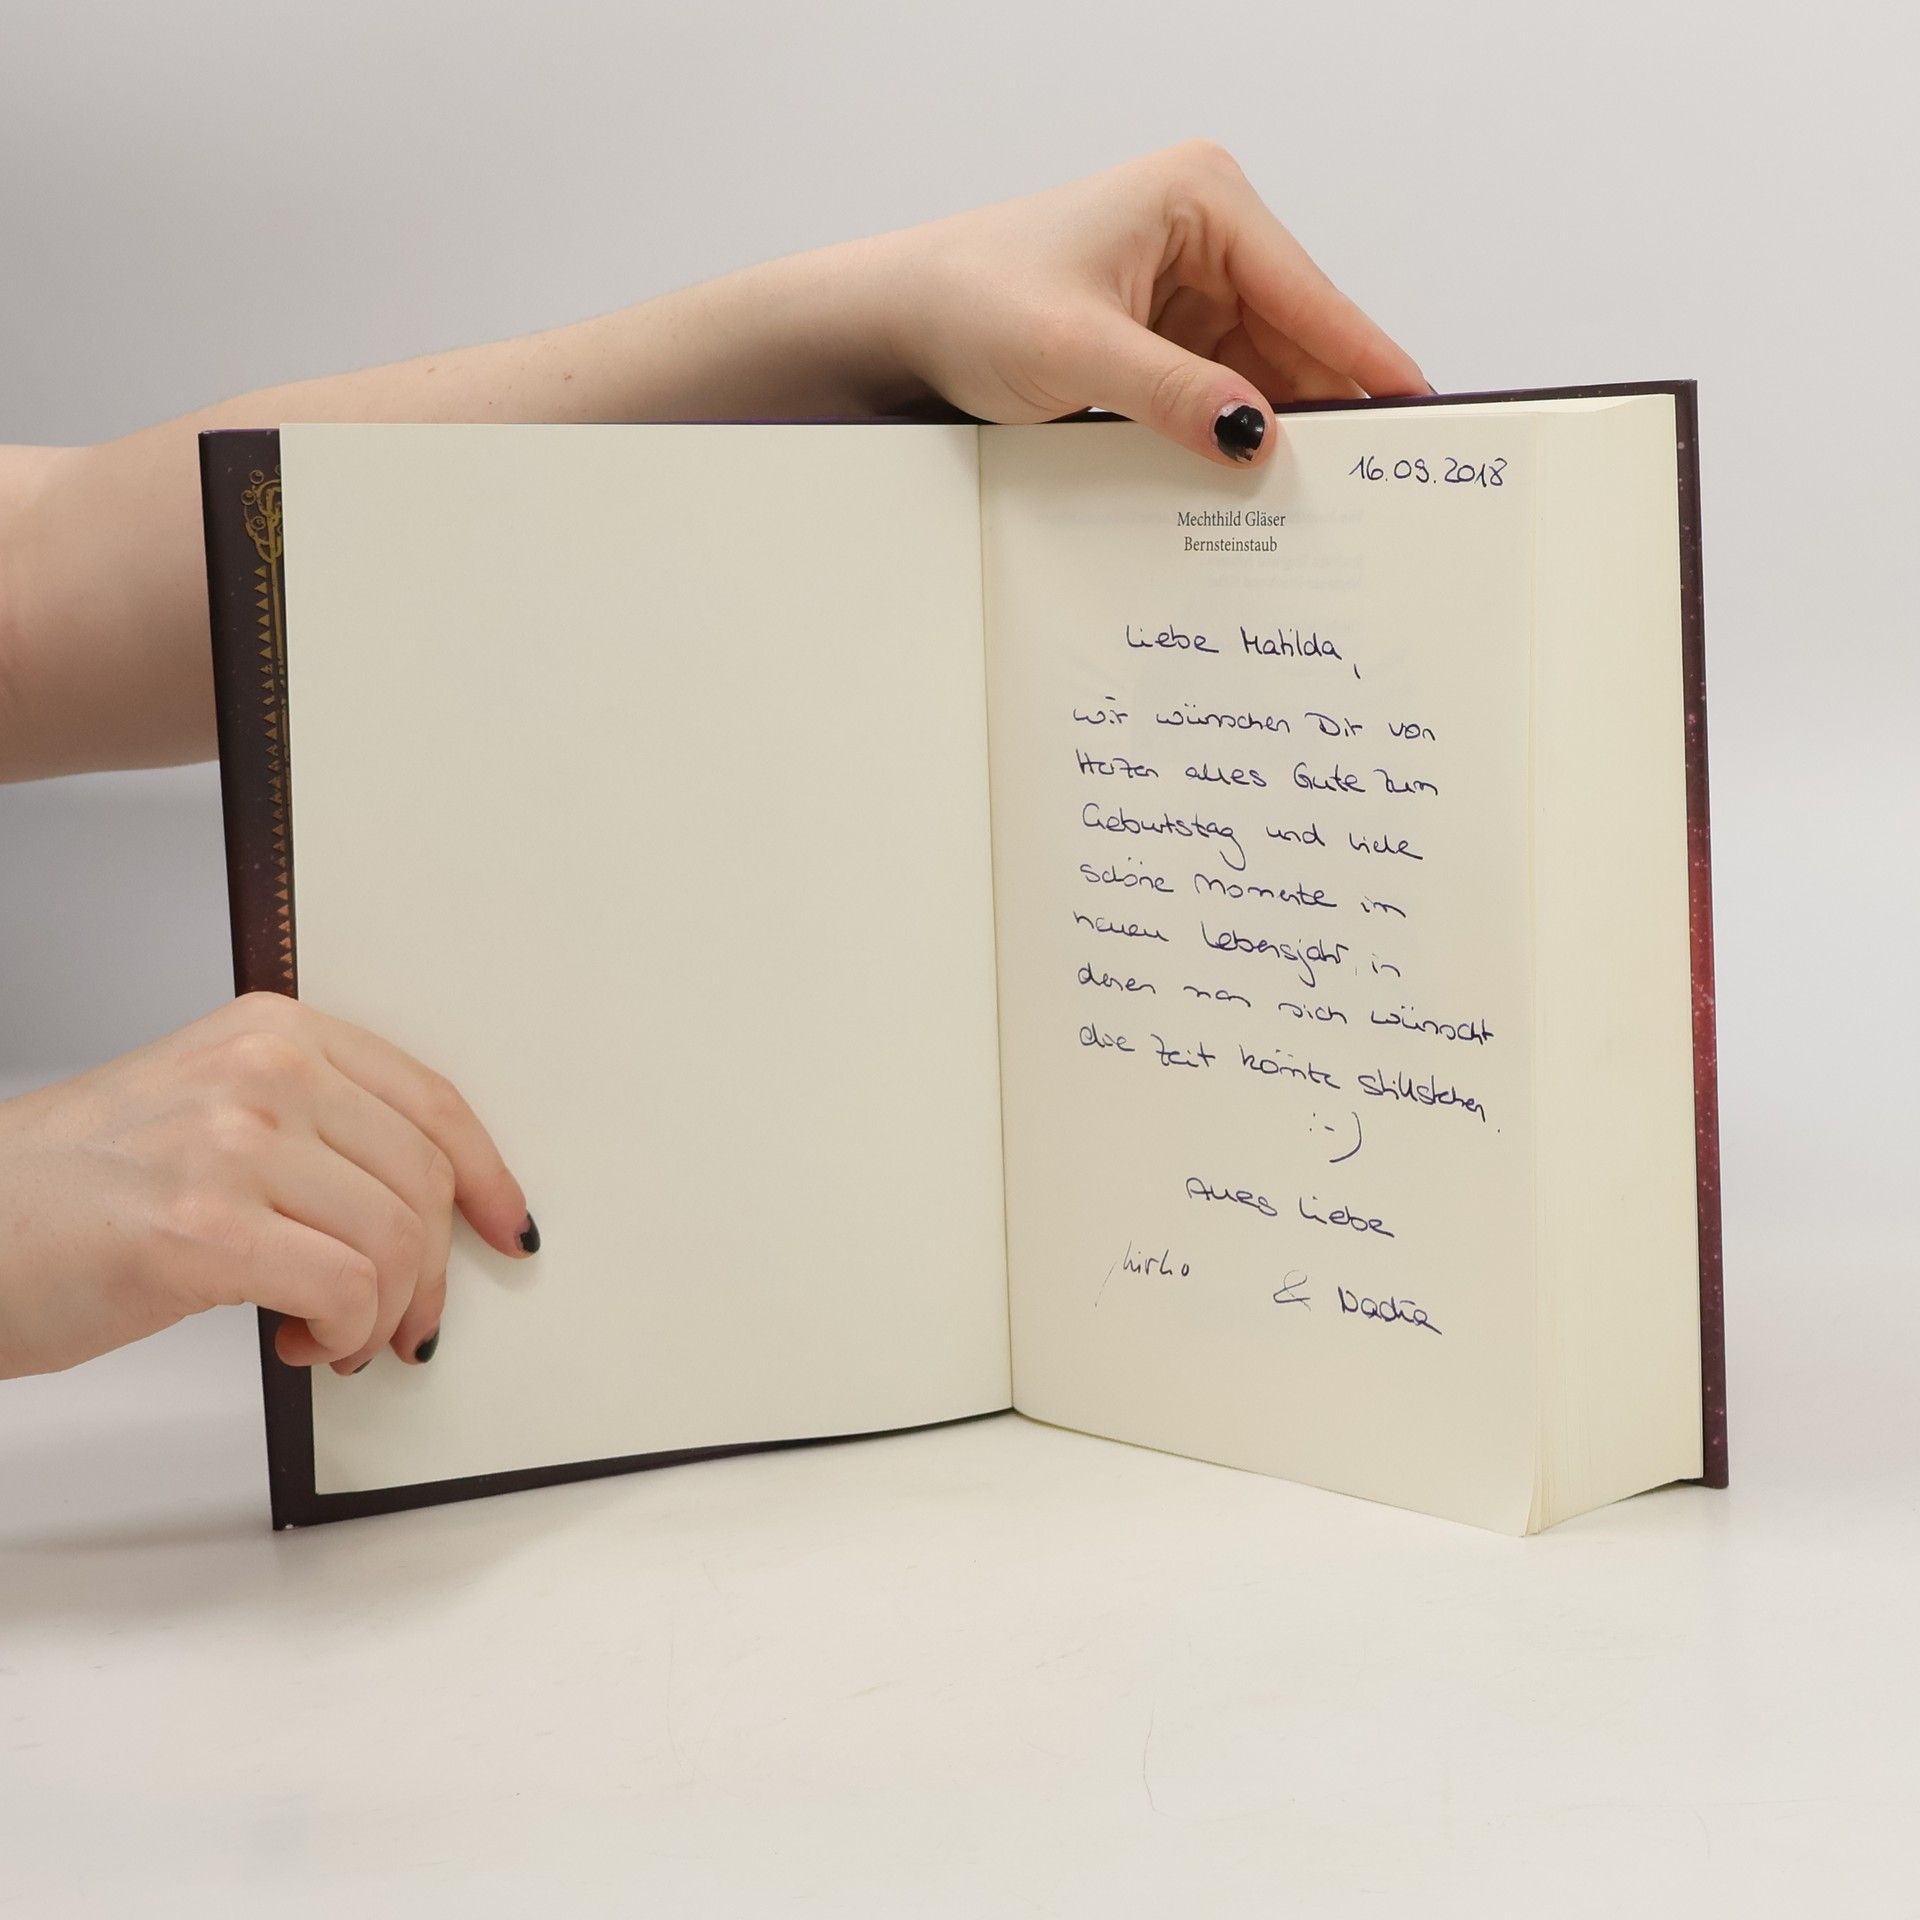 16.09.2018
Mechthild Gläser
Bernsteinstaub
Liebe Matilda,
wir wünschen Dir von
Herzen alles Gute zum
Geburtstag und viele
schöne Momente im
neuen Lebensjahr, in
denen man sich wünscht
die Zeit könnte stillstehen.
:-)
Alles Liebe
Mirko
& Nadia